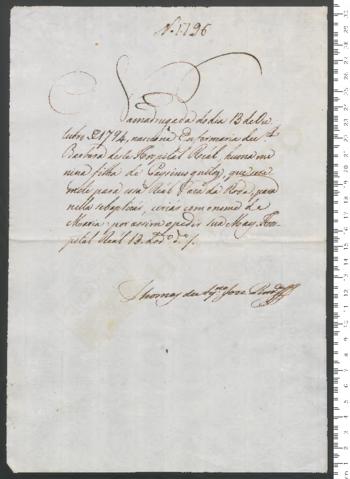 N. 1796
Na madrugada do dia 13 de Ou
tubro de 1794, nasceo na Enfermaria de S.ta
Barbara deste Hospital Real, huma me
nina filha de
mete para essa Real Caza da Roda, para
nella se baptizar, e criar com o nome de
Maria por assim o pedir sua May. Hos
pital Real 13 de
Thomas de Jose